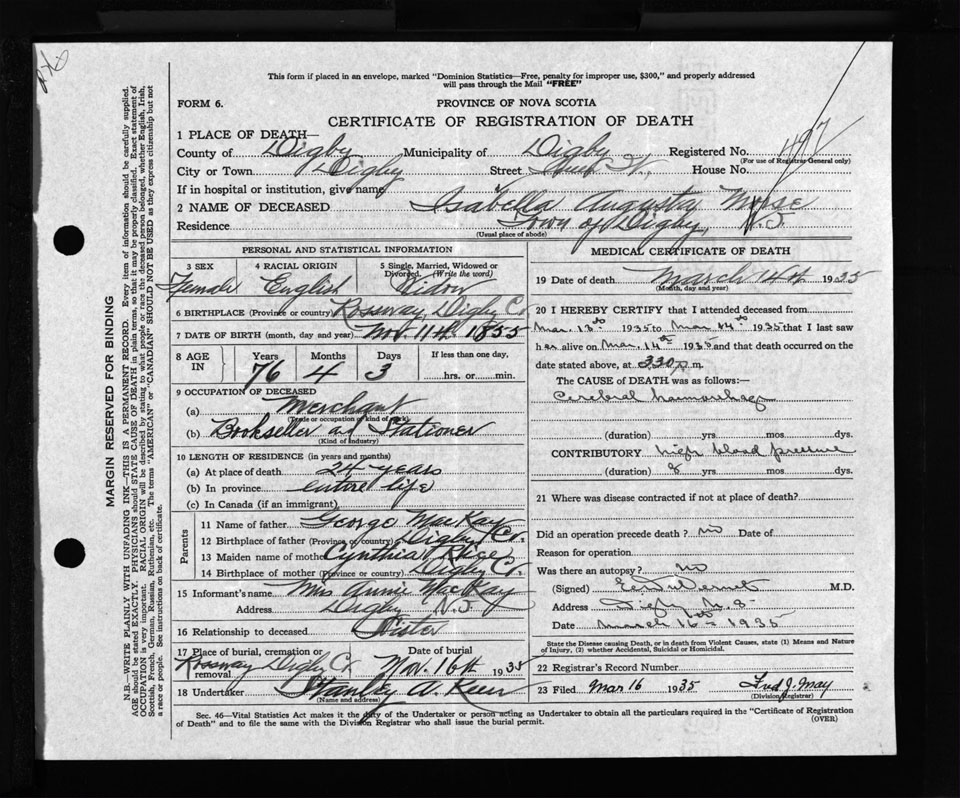 This form if placed in an envelope, marked "Dominion Statistics—Free, penalty for improper use, $300," and properly addressed
will pass through the Mail "FREE"
FORM 6.
PROVINCE OF NOVA SCOTIA
CERTIFICATE OF REGISTRATION OF DEATH
497
1 PLACE OF DEATH—
County of Digby Municipality of Digby Registered No.
(For use of Registrar General only)
City or Town Digby Street House No.
If in hospital or institution, give name
2 NAME OF DECEASED Isabella Augusta Morse
Residence Town of Digby, N.S.
(Usual place of abode)
PERSONAL AND STATISTICAL INFORMATION
3 SEX 4 RACIAL ORIGIN 5 Single, Married, Widowed or Divorced. (Write the word)
Female English Widow
6 BIRTHPLACE (Province or country) Rossway Digby Co
7 DATE OF BIRTH (month, day and year) Nov. 11th 1855
8 AGE IN Years Months Days If less than one day,
76 4 3 hrs. or min.
9 OCCUPATION OF DECEASED
(a) Merchant
(Trade or occupation or kind of work)
(b) Bookseller and Stationer
(Kind of industry)
10 LENGTH OF RESIDENCE (in years and months)
(a) At place of death 24 years
(b) In province entire life
(c) In Canada (if an immigrant)
Parents
11 Name of father George MacKay
12 Birthplace of father (Province or country) Digby Co.
13 Maiden name of mother Cynthia Rice
14 Birthplace of mother (Province or country) Digby Co.
15 Informant's name Mrs Annie MacKay
Address Digby N.S.
16 Relationship to deceased Sister
17 Place of burial, cremation or removal Date of burial
Rossway Digby Co Nov. 16th 1935
18 Undertaker Stanley A.
(Name and address)
MEDICAL CERTIFICATE OF DEATH
19 Date of death March 14th 1935
(Month, day and year)
20 I HEREBY CERTIFY that I attended deceased from
Mar. 13th 1935 to Mar 14th 1935 that I last saw
her alive on Mar. 14th 1935 and that death occurred on the
date stated above, at 330 p.m.
The CAUSE OF DEATH was as follows:—
Cerebral haemorrhage
(duration) yrs mos dys.
CONTRIBUTORY high blood pressure
(duration) 8 yrs. mos. dys.
21 Where was disease contracted if not at place of death?
Did an operation precede death? no Date of
Reason for operation
Was there an autopsy? no
(Signed) M.D.
Address Digby N.S
Date March 16th 1935
State the Disease causing Death, or in death from Violent Causes, state (1) Means and Nature
of Injury, (2) whether Accidental, Suicidal or Homicidal.
22 Registrar's Record Number
23 Filed Mar 16 1935 Fred J. May
(Division Registrar)
Sec. 46—Vital Statistics Act makes it the duty of the Undertaker or person acting as Undertaker to obtain all the particulars required in the "Certificate of Registration
of Death" and to file the same with the Division Registrar who shall issue the burial permit.
(OVER)
MARGIN RESERVED FOR BINDING
N.B.—WRITE PLAINLY WITH UNFADING INK—THIS IS A PERMANENT RECORD. Every item of information should be carefully supplied.
AGE should be stated EXACTLY. PHYSICIANS should STATE CAUSE OF DEATH in plain terms, so that it may be properly classified. Exact statement of
OCCUPATION is very important. RACIAL ORIGIN will be described by stating to what people or race the deceased person belonged, whether English, Irish,
Scottish, French, German, Russian, Ruthenian, etc. The terms "AMERICAN" or "CANADIAN" SHOULD NOT BE USED as they express citizenship but not
a race or people. See instructions on back of certificate.